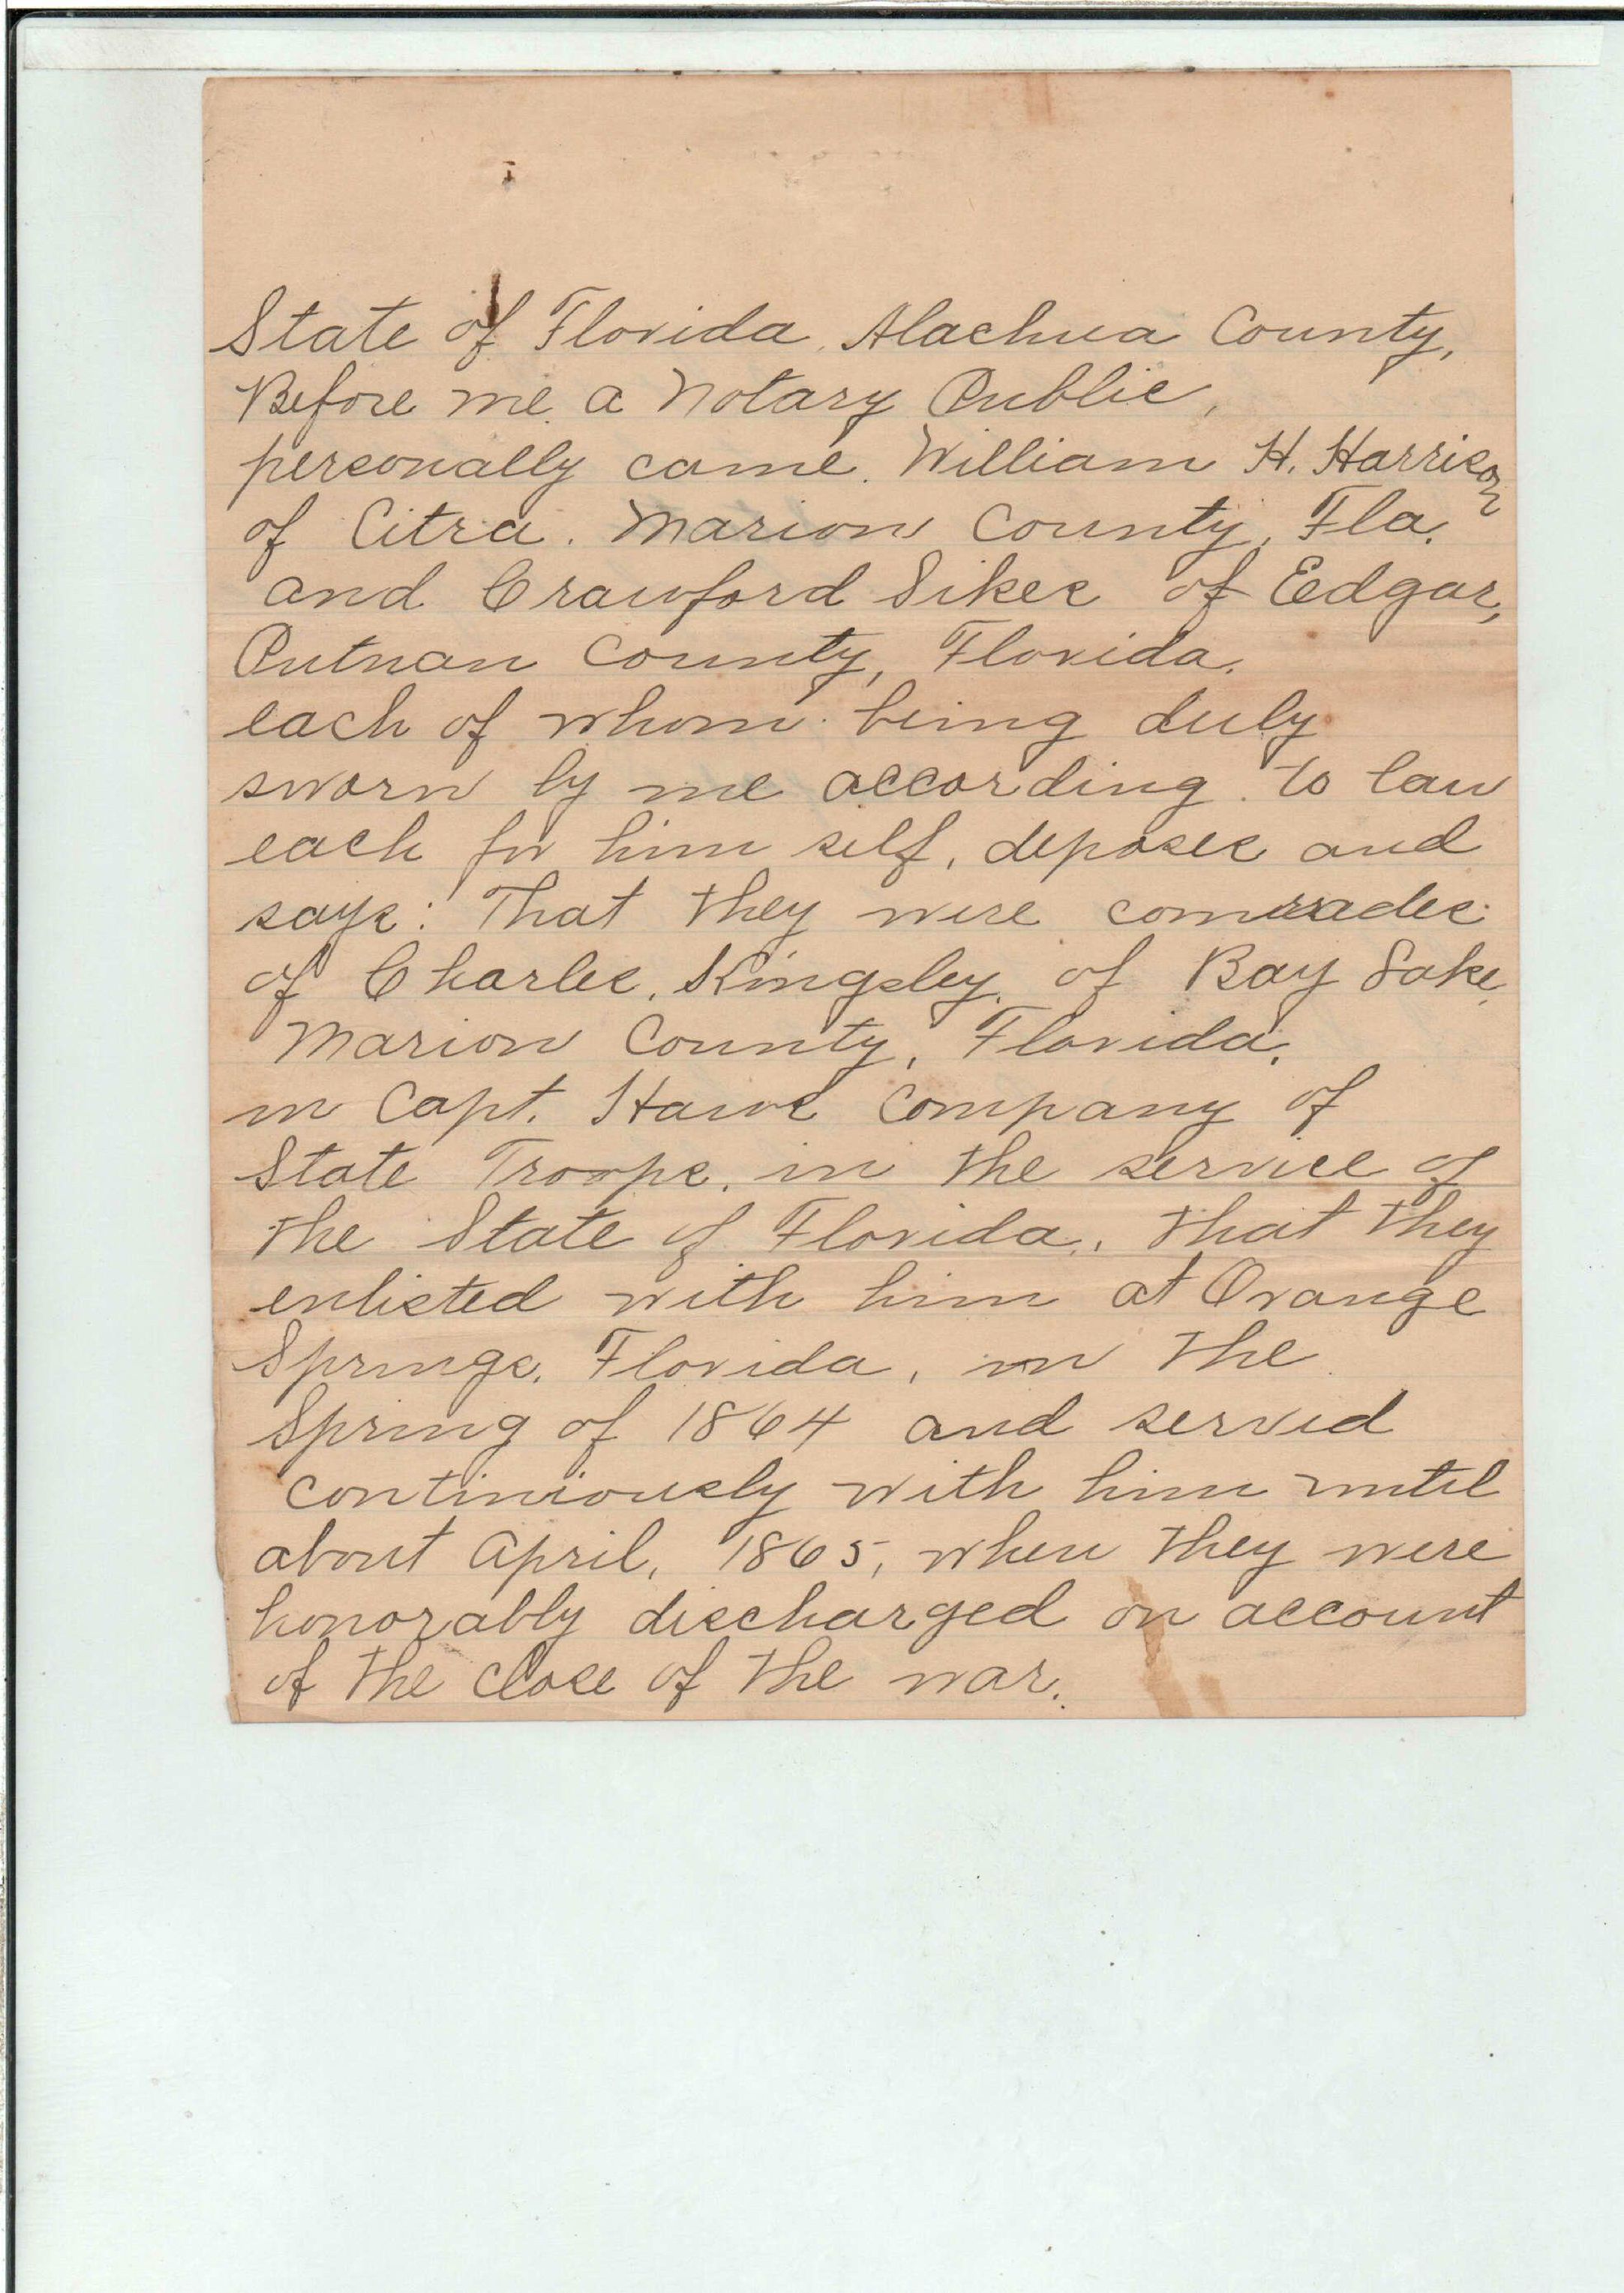 State of Florida, Alachua County,
Before me, a Notary Public,
personally came. William H. Harrison
of Citra. Marion County, Fla.
and Crawford Sikes of Edgar,
Putnan County, Florida.
each of whom being duly
sworn by me according to law
each for him self, deposes and
says: That they were comrades
of Charles, Kingsley, of Bay Lake,
Marion County, Florida,
in Capt. Company of
State Troops, in the service of
the State of Florida, that they
enlisted with him at Orange
Springs, Florida, in the
Spring of 1864 and served
continiously with him until
about April, 1865, when they were
honorably discharged on account
of the close of the war.